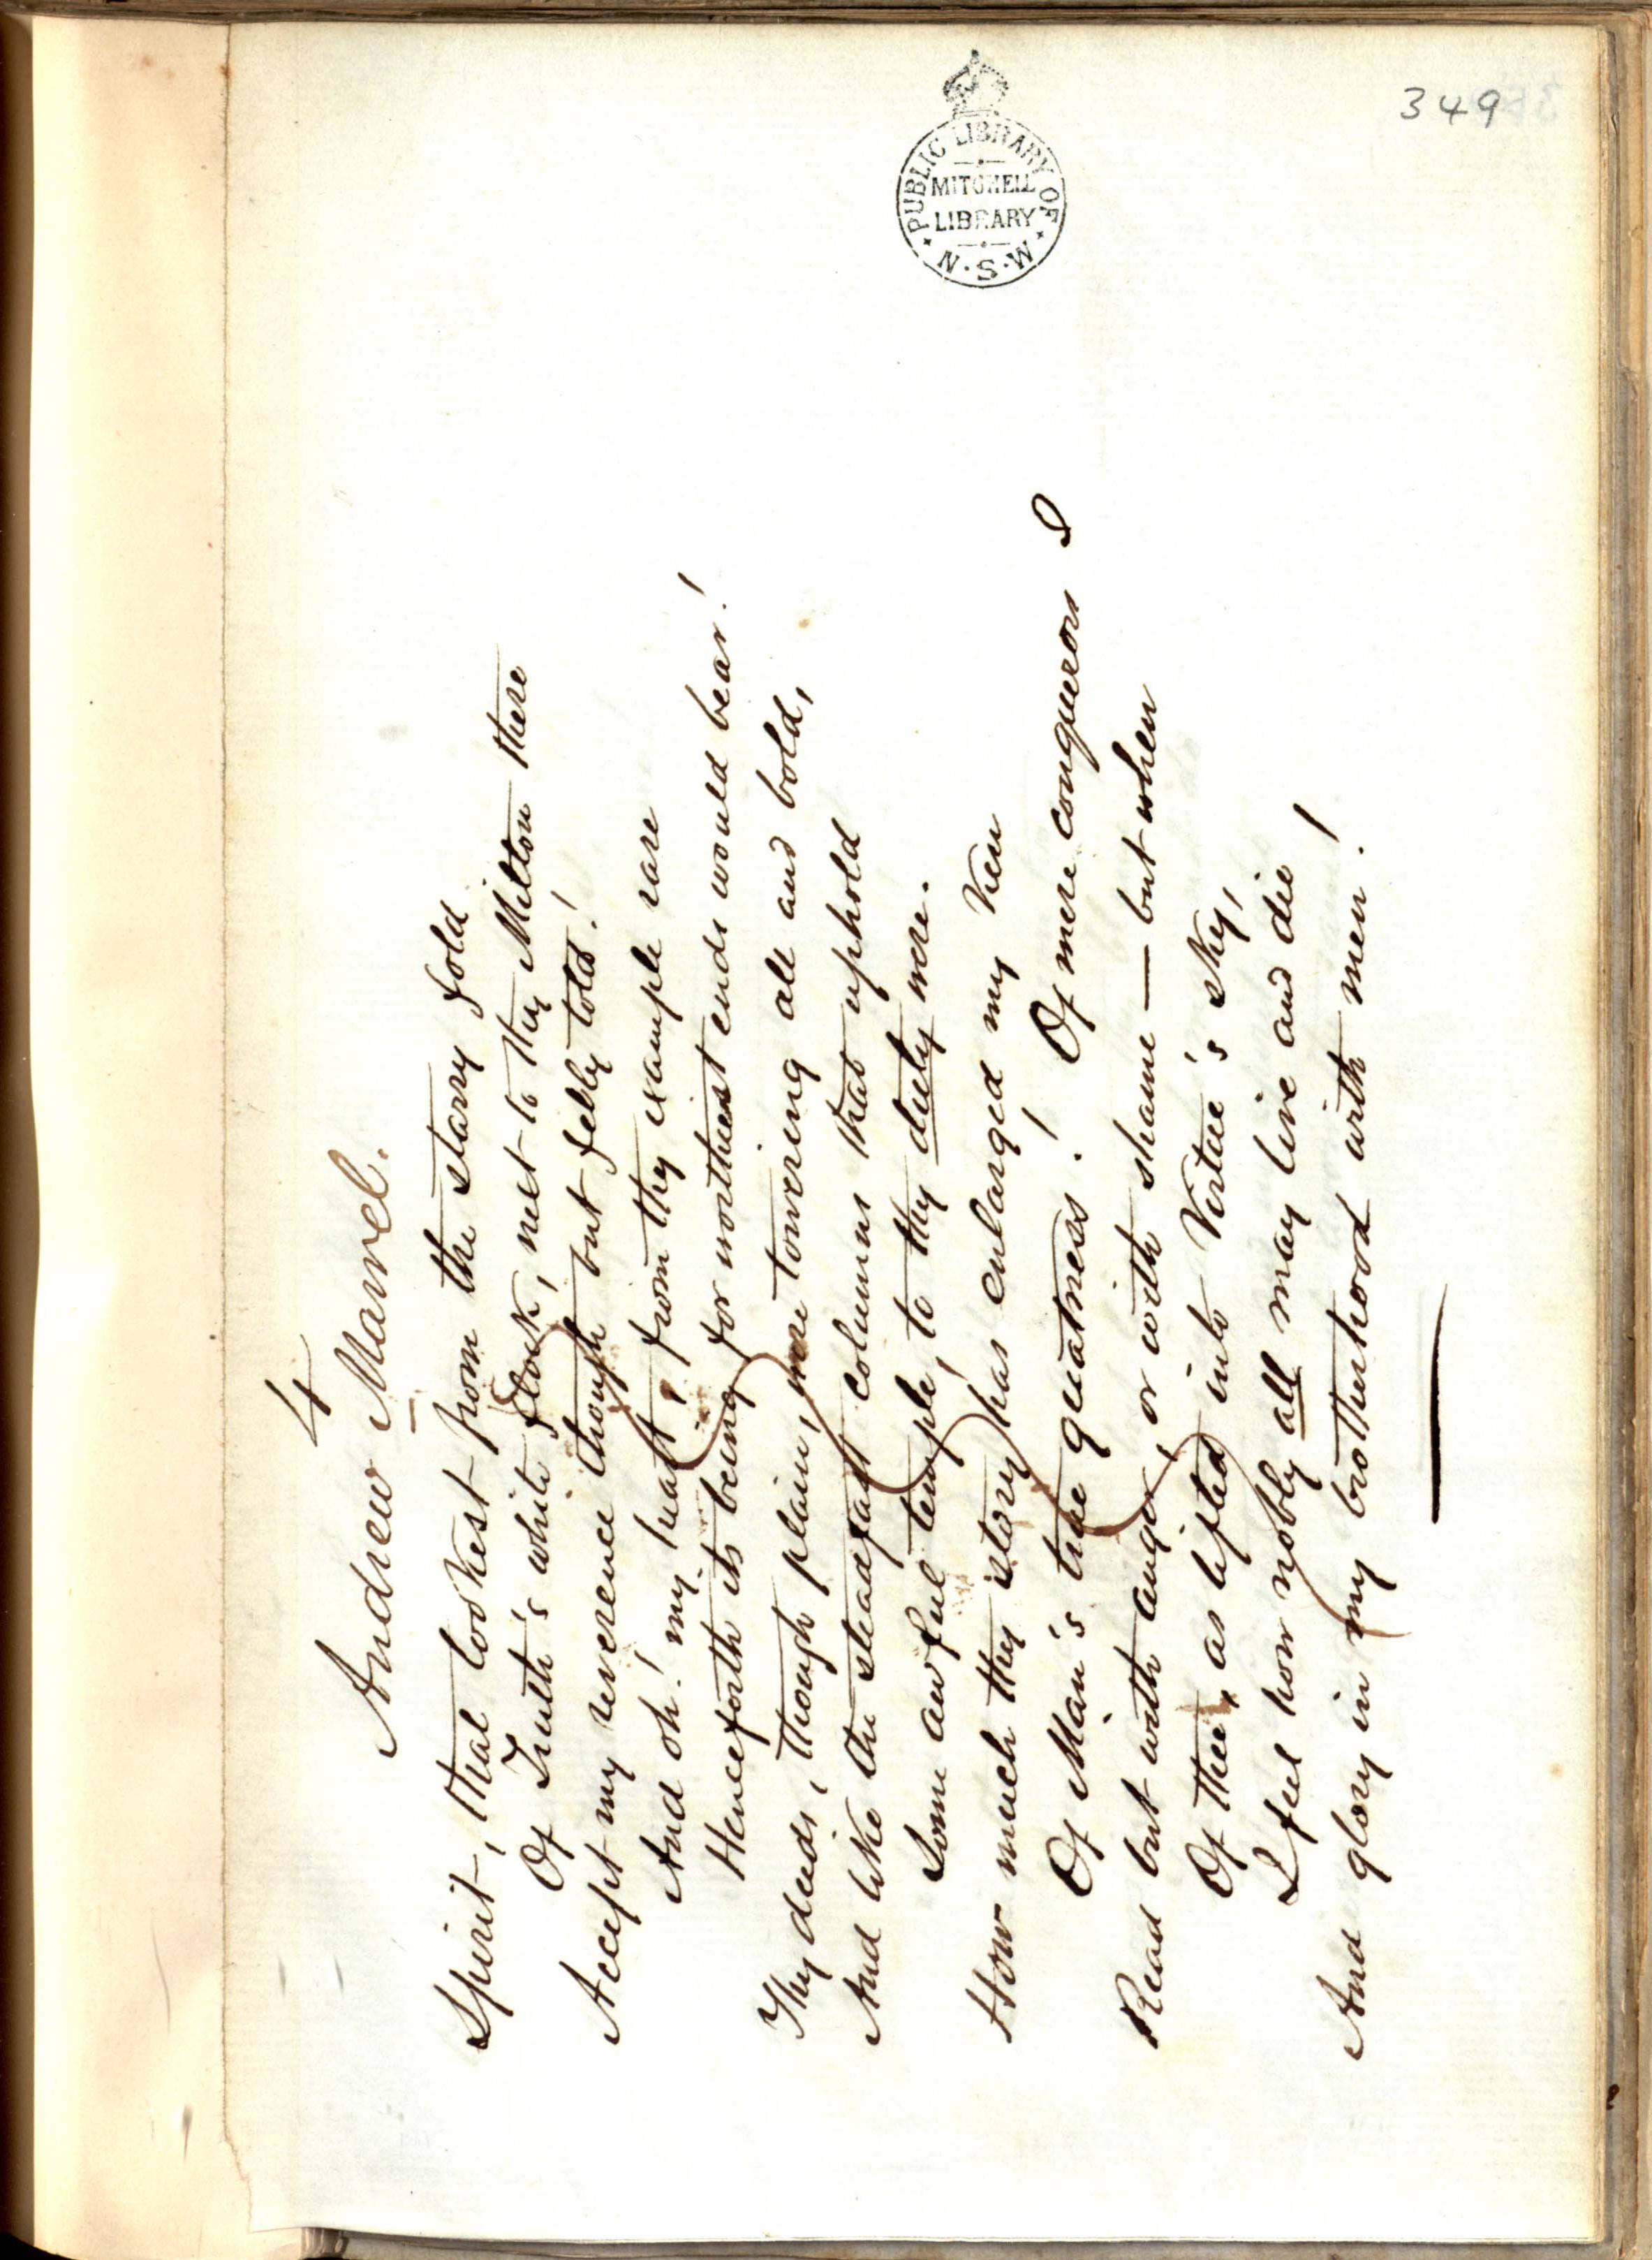 349
PUBLIC LIBRARY OF N.S.W
MITCHELL
LIBRARY
4
Andrew Marvel.
Spirit, that lookest from the starry fold
Of Truth's white flock, next to thy Milton there
Accept my reverence though but felly told!
And oh! my heart, from thy example rare
Henceforth its being for worthiest ends would bear!
Thy deeds, though plain, were towering all and bold,
And like the steadfast columns that uphold
Some awful temple, to thy duty were.
How much thy story has enlarged my Ken
Of Man's true greatness! Of mere conquerors I
Read but with anger, or with shame — but when
Of thee, as lifted into Virtue's sky,
I feel how nobly all may live and die
And glory in my brotherhood with men!